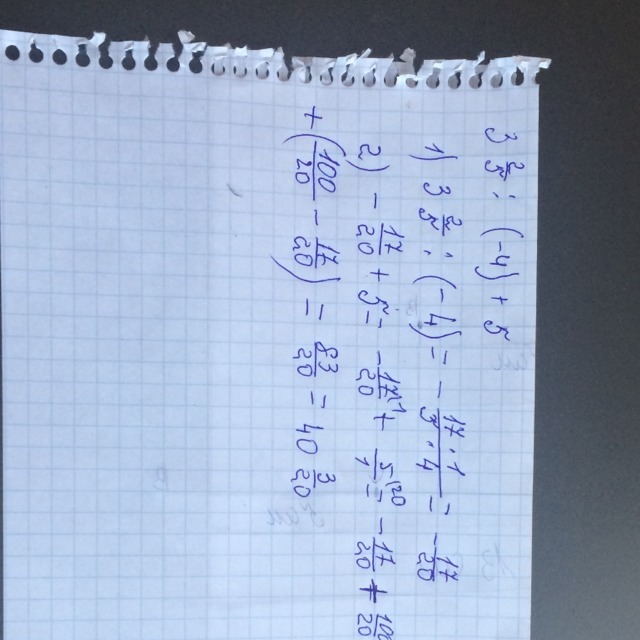 3 2/5 : (-4) + 5
1) 3 2/5 : (-4) = - 17·1/5·4 = - 17/20
2) - 17/20 + 5 = - 17/20 \1 + 5/1 \20 = - 17/20 + 100/20
+ (100/20 - 17/20) = 83/20 = 40 3/20